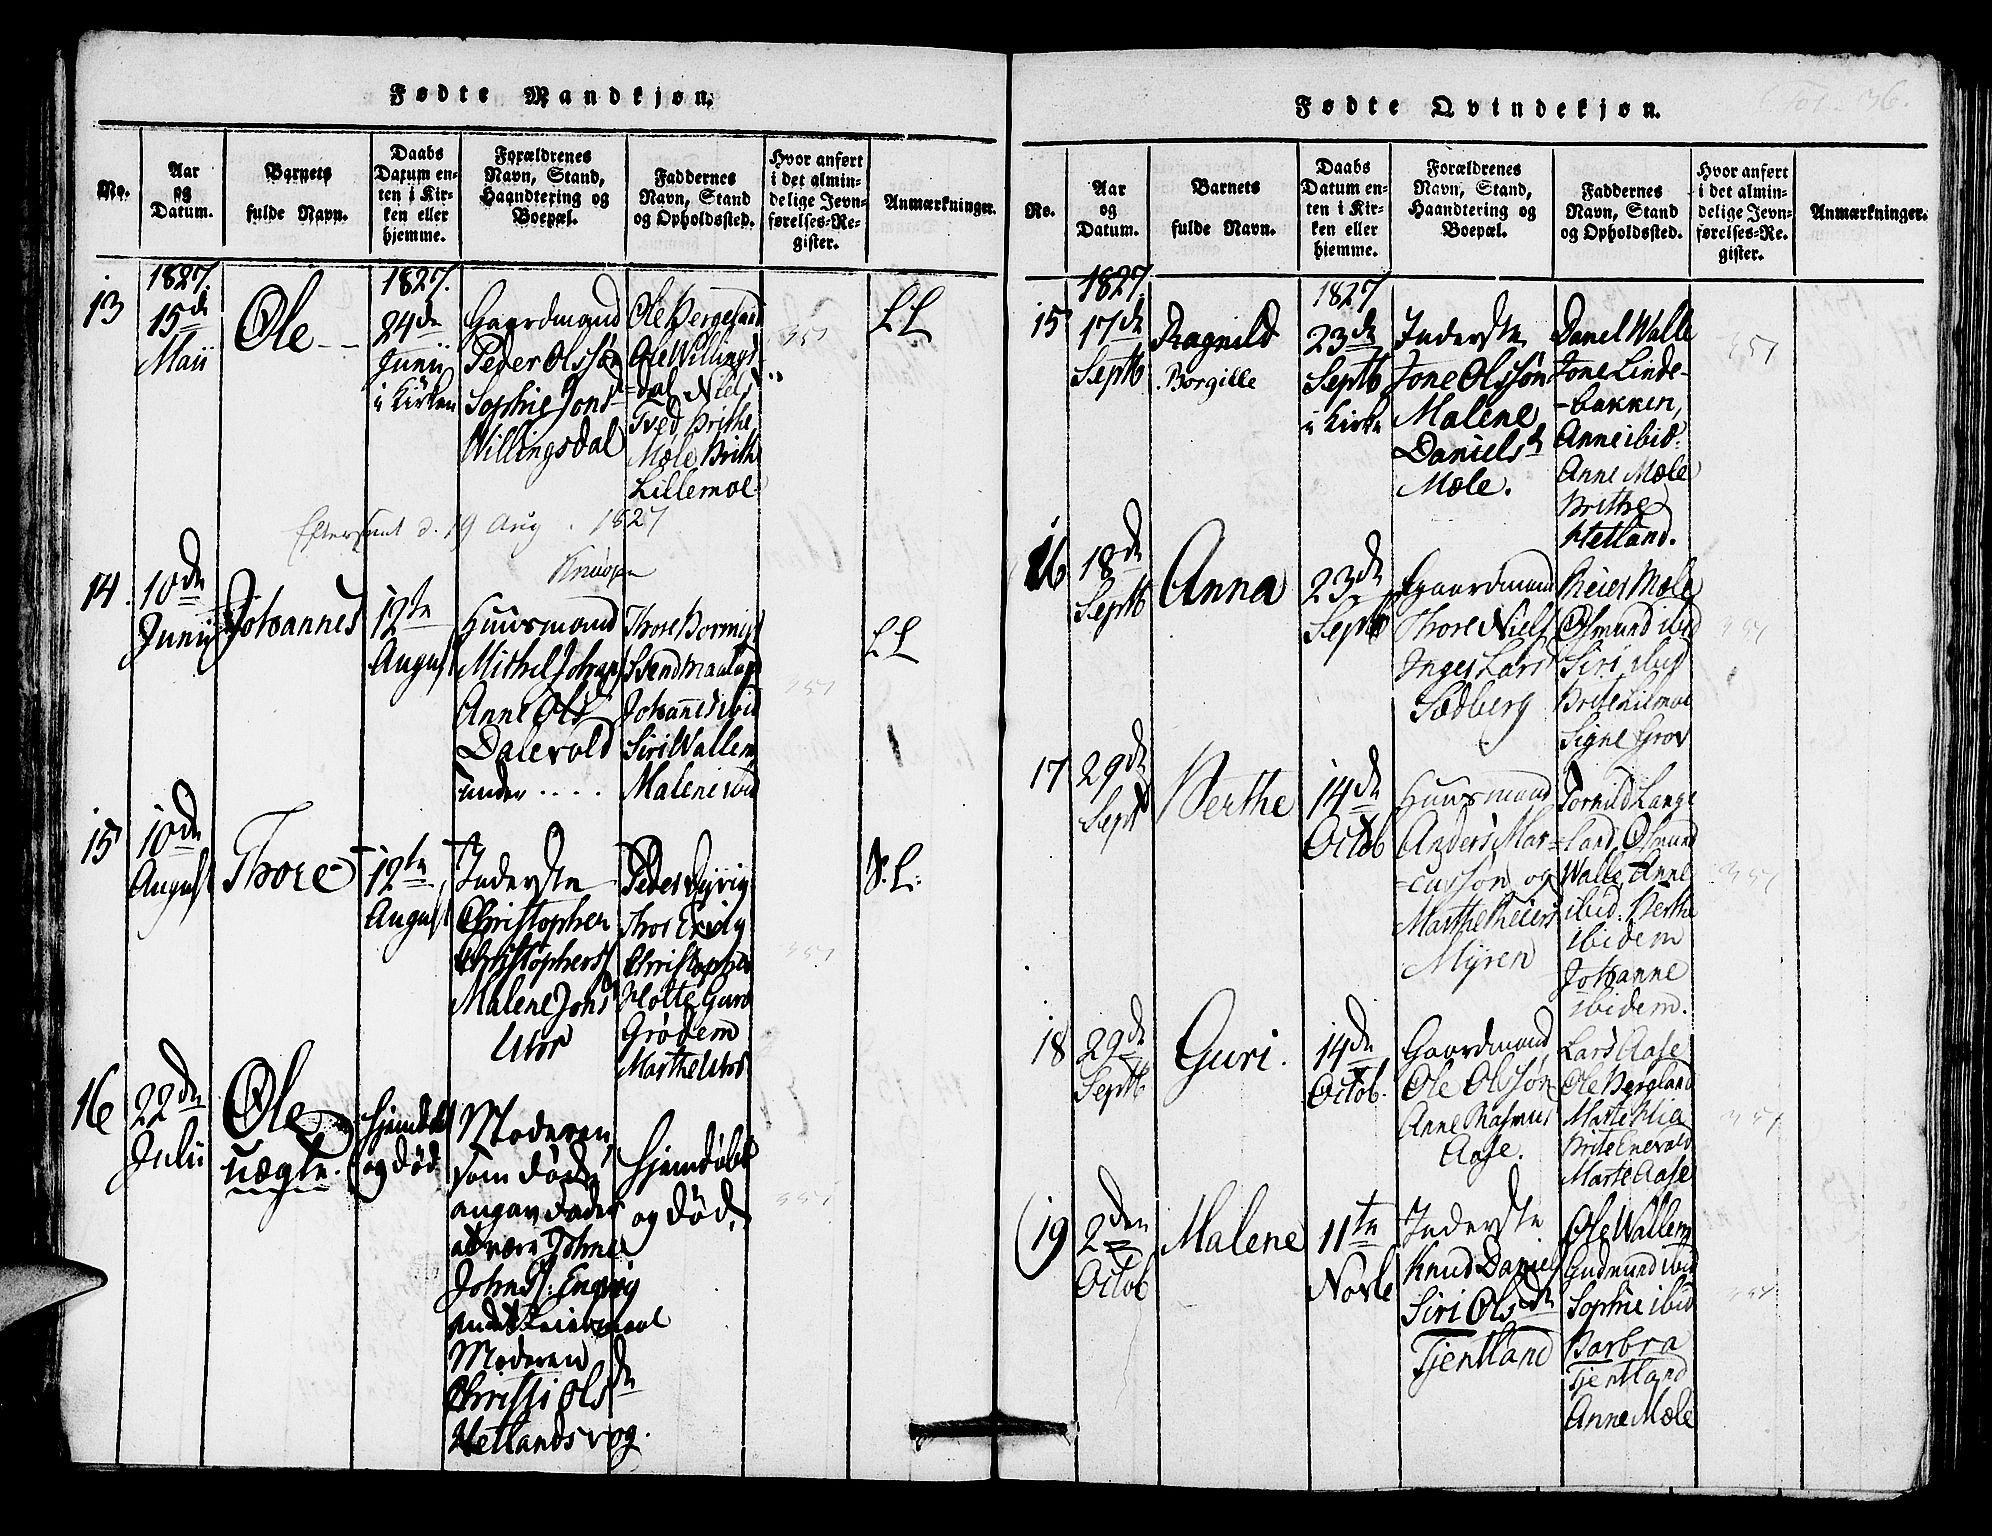 Fødte Mandkjøn.
No.
Aar
og
Datum.
Barnets
fulde Navn.
Daabs
Datum en-
ten i Kir-
ken eller
hjemme.
Forældrenes
Navn, Stand,
Haandtering og
Boepæl.
Faddernes
Navn, Stand
og Opholdssted.
Hvor anført
i det almin-
delige Jevn-
førelses-Re-
gister.
Anmærkninger.
13
1827.
15de
Maii
Ole
1827.
24de
Junii
i Kirken
Gaardmand
Peder Olssøn
Sophie Jons
Willingsdal
Ole Bergesað
Ole Willings-
dal Niels
Tved Brithe
Mæle Brithe
Lillemoe
351
LL
d. 19 Aug. 1827
14.
10de
Junii
Johannes
12te
August
Huusmand
Michel Johans
Anne Ols
Dalevold
under
Thore
Svend
Johannes ibid
Siri Wallem
Malene ibid
351
LL
15
10de
August
Thore
12te
August
Inderste
Christopher
Christophers
Malene Jons
Utør
Peder
Thor
Christopher
Holte Guro
Grødem
Marthe
351
S.L.
16
22de
Julii
Ole
uægte.
hjemdøbt
og død
Moderen,
som døde
angav
at være Johne
Johns:
Leiermaal
Moderen
Christi Olsd
Hetlandsvog.
hjemdøbt
og død.
351
Fødte Qvindekjøn.
36.
No.
Aar
og
Datum.
Barnets
fulde Navn.
Daabs
Datum en-
ten i Kir-
ken eller
hjemme.
Forældrenes
Navn, Stand,
Haandtering og
Boepæl.
Faddernes
Navn, Stand
og Opholdssted.
Hvor anført
i det almin-
delige Jevn-
førelses-Re-
gister.
Anmærkninger.
15
1827
17de
Septb
Ragnild
Borgille
1827
23de
Septb
i Kirke
Inderste
Jone Olssøn
Malene
Daniels
Mæle.
Danel Walle
Jone Linde-
-bakken,
Anne ibid.
Anne Mæle
Brithe
Hetland.
351
16
18de
Septb
Anna
23de
Septb
Gaardmand
Thore Niels
Inger Lars
Sødberg
Reier Mæle
Osmund ibid
Siri ibid
Brite Lilmoe
Signe Grov
351
17
29de
Septb
Berthe
14de
Octob
Huusmand
Anders Mar-
-cussøn og
Marthe Reiers
Myren
Tornild Lange
-land, Osmund
Walle, Anne
ibid. Berthe
ibidem
Johanne
ibidem.
351
18
29de
Septb
Guri.
14de
Octob.
Gaardmand
Ole Olssøn
Anne Rasmus
Aase.
Lars Aase
Ole Bergland
Marte
Brite Enevald
Marte Aase
351
19
2den
Octob
Malene
11te
Novbe
Inderste
Knud Daniels
Siri Olsdr
Tjentland
Ole Wallem
Gudmund ibid
Sophie ibid
Barbra
Tjentland
Anne Mæle
351